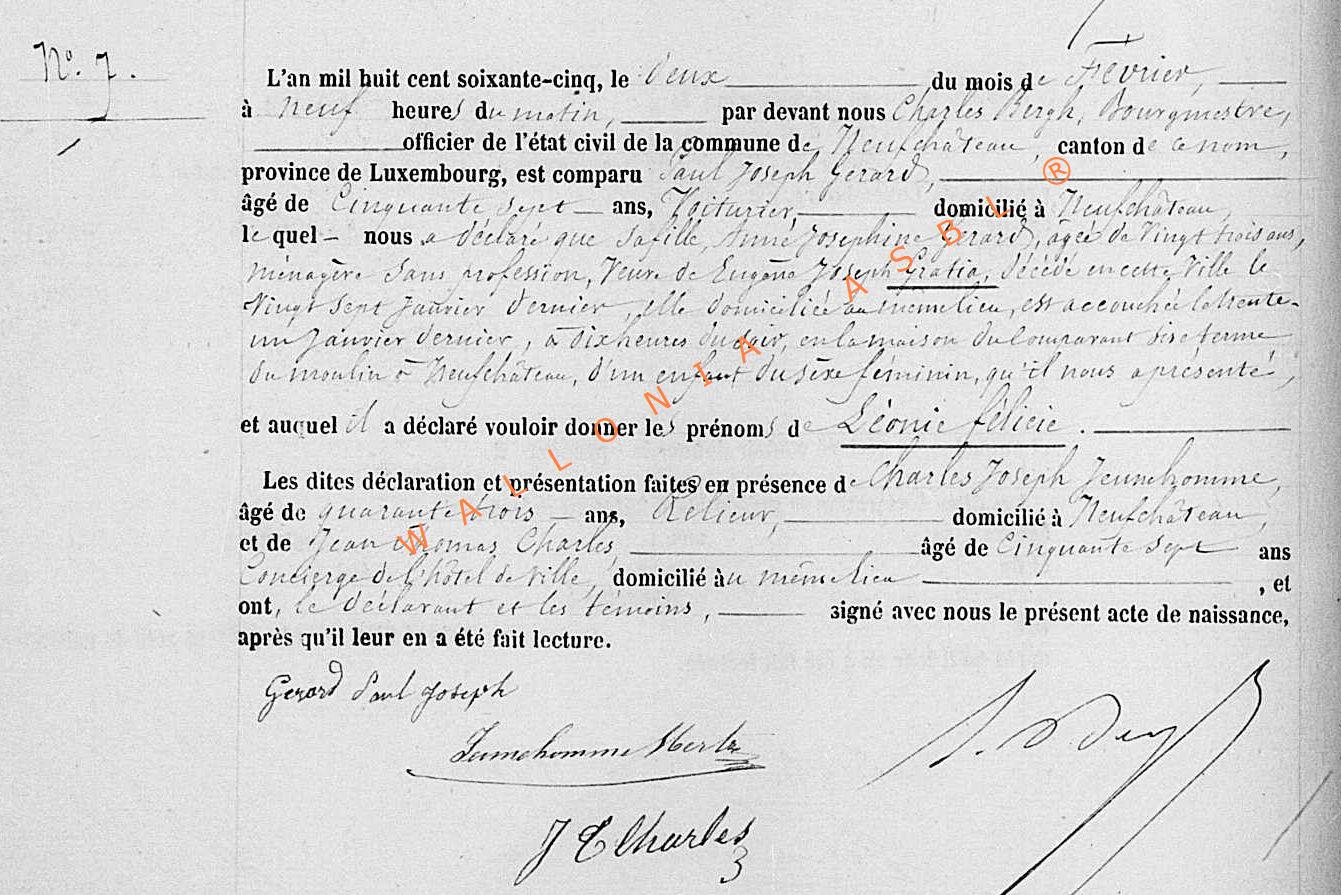 N°. 7.
L'an mil huit cent soixante-cinq, le deux du mois de Février,
à neuf heures du matin, par devant nous Charles Bergh, Bourgmestre,
officier de l'état civil de la commune de Neufchâteau, canton de ce nom,
province de Luxembourg, est comparu Paul Joseph Gerard,
âgé de Cinquante sept ans, Voiturier, domicilié à Neufchâteau,
lequel nous a déclaré que sa fille, Anne Josephine Gerard, agée de Vingt trois ans,
ménagère sans profession, Veuve de Eugène Joseph Gratia, décédé en cette Ville le
Vingt sept Janvier dernier, elle domiciliée au même lieu, est accouchée le trente-
un Janvier dernier, à dix heures du soir, en la maison du Comparant sise ferme
du moulin à Neufchâteau, d'un enfant du sèxe féminin, qu'il nous a présenté,
et auquel il a déclaré vouloir donner les prénoms de Léonie félicie.
Les dites déclaration et présentation faites en présence de Charles Joseph Jeunehomme,
âgé de quarante trois ans, Relieur, domicilié à Neufchâteau,
et de Jean Thomas Charles, âgé de Cinquante sept ans
Concierge de l'hôtel de Ville, domicilié au même lieu, et
ont, le déclarant et les témoins, signé avec nous le présent acte de naissance,
après qu'il leur en a été fait lecture.
Gerard Paul Joseph
Jeunehomme
J T Charles
WALLONIA ASBL ®